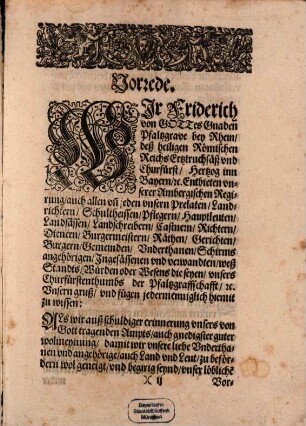 Vorrede.
WIr Friderich
von GOTTes Gnaden
Pfaltzgrave bey Rhein/
deß heiligen Römischen
Reichs Ertztruchsäß und
Churfürst/ Hertzog inn
Bayern/ꝛc. Entbieten un-
serer Ambergischen Regi-
rung/ auch allen uñ jeden unsern Prelaten/ Land-
richtern/ Schultheissen/ Pflegern/ Hauptleuten/
Landsässen/ Landschreibern/ Castnern/ Richtern/
Dienern/ Burgermeistern/ Räthen/ Gerichten/
Burgern/ Gemeinden/ Underthanen/ Schirms
angehörigen/ Ingesässenen und verwandten/ weß
Standts/ Würden oder Wesens die seyen/ unsers
Churfürstenthumbs der Pfaltzgraffschafft/ ꝛc.
Unsern gruß/ und fügen jedermenniglich hiemit
zu wissen:
Als wir auß schuldiger erinnerung unsers von
Gott tragenden Ampts/ auch gnedigster guter
wolmeynung/ damit wir unsere liebe Undertha-
nen und angehörige/ auch Land und Leut/ zu beför-
dern wol geneigt/ und begirig seynd/ unser löbliche
X ij
Vor-
Bayerische
Staatsbibliothek
München